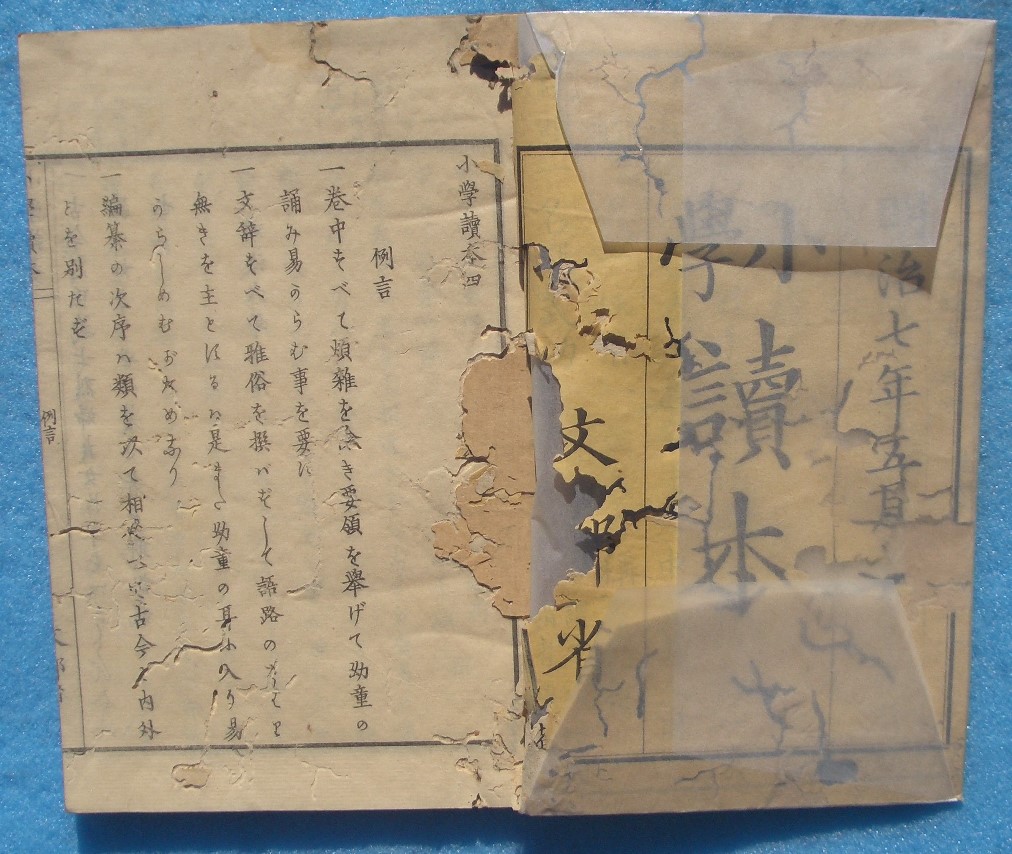 明治七年
小學讀本
文部省
小學讀本四
例言
一 巻中すべて煩雜を除き要領を擧げて幼童の
誦み易からむ事を要す
一 文辭すべて雅俗を撰バずして語路の
無きを主とするハ是また幼童の耳に入り易
からしめむ
一 編纂の次序ハ類を以て相 古今 内外
とを別たず
例言